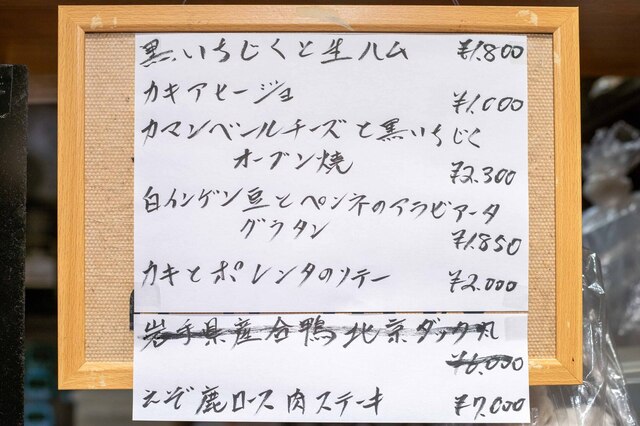 黒いちじくと生ハム ¥1.800
カキアヒージョ ¥1.000
カマンベールチーズと黒いちじく
オーブン焼 ¥2.300
白インゲン豆とペンネのアラビアータ
グラタン ¥1.850
カキとポレンタのソテー ¥2.000
岩手県産合鴨北京ダック丸
¥6.000
えぞ鹿ロース肉ステーキ ¥7.000